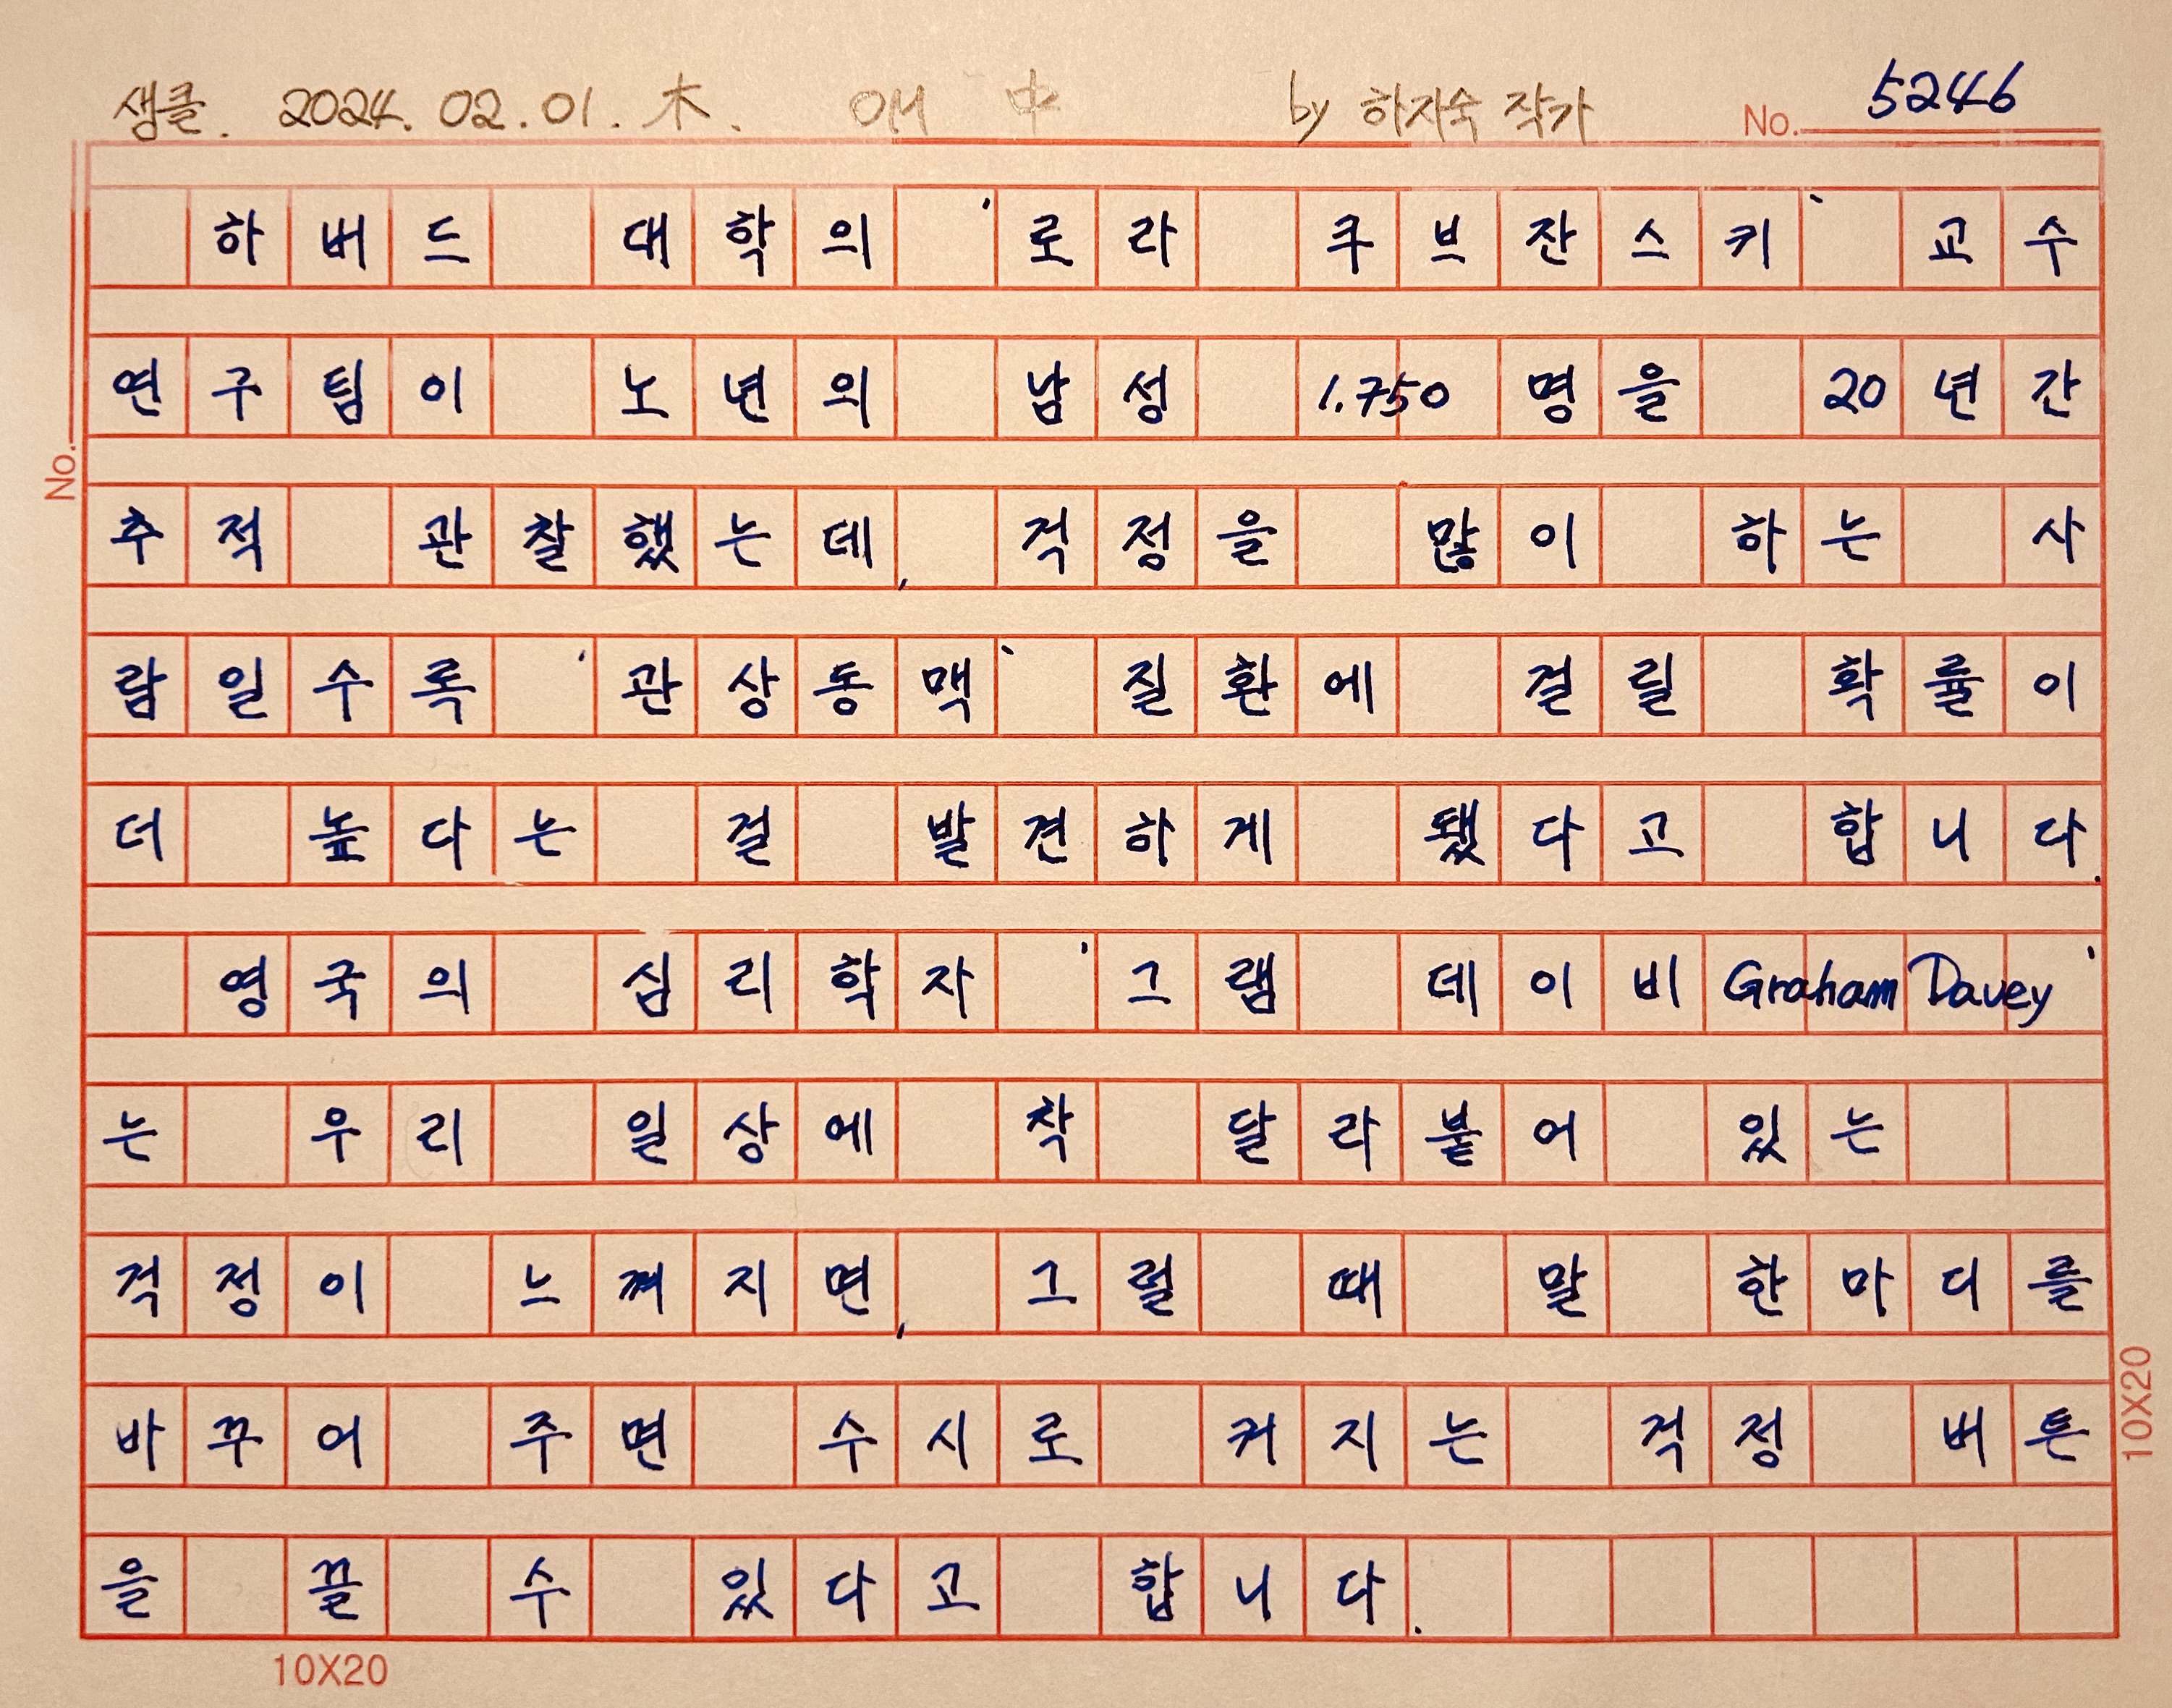 샘클. 2024. 02. 01. 木. 애 中 by 하자숙 작가 No. 5246
하버드 대학의 '로라 쿠브잔스키' 교수
연구팀이 노년의 남성 1.750명을 20년간
추적 관찰했는데, 걱정을 많이 하는 사
람일수록 '관상동맥' 질환에 걸릴 확률이
더 높다는 걸 발견하게 됐다고 합니다.
영국의 심리학자 '그램 데이비 Graham Davey'
는 우리 일상에 착 달라붙어 있는
걱정이 느껴지면, 그럴 때 말 한마디를
바꾸어 주면 수시로 커지는 걱정 버튼
을 끌 수 있다고 합니다.
No.
10X20
10X20